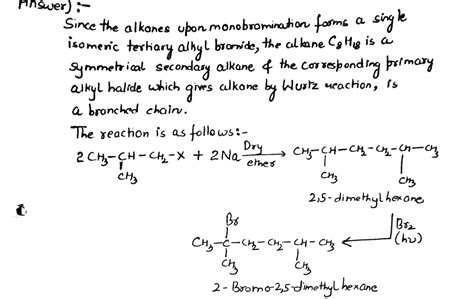 Answer) :-
Since the alkanes upon monobromination forms a single
isomeric tertiary alkyl bromide, the alkane C8H18 is a
symmetrical secondary alkane & the corresponding primary
alkyl halide which gives alkane by Wurtz reaction, is
a branched chain.
The reaction is as follows:-
2 CH3-CH-CH2-X + 2Na Dry ether → CH3-CH-CH2-CH2-CH-CH3
CH3 CH3 CH3
2,5-dimethylhexane
Br Br2 (hν)
CH3-C-CH2-CH2-CH-CH3
CH3 CH3
2-Bromo-2,5-dimethylhexane